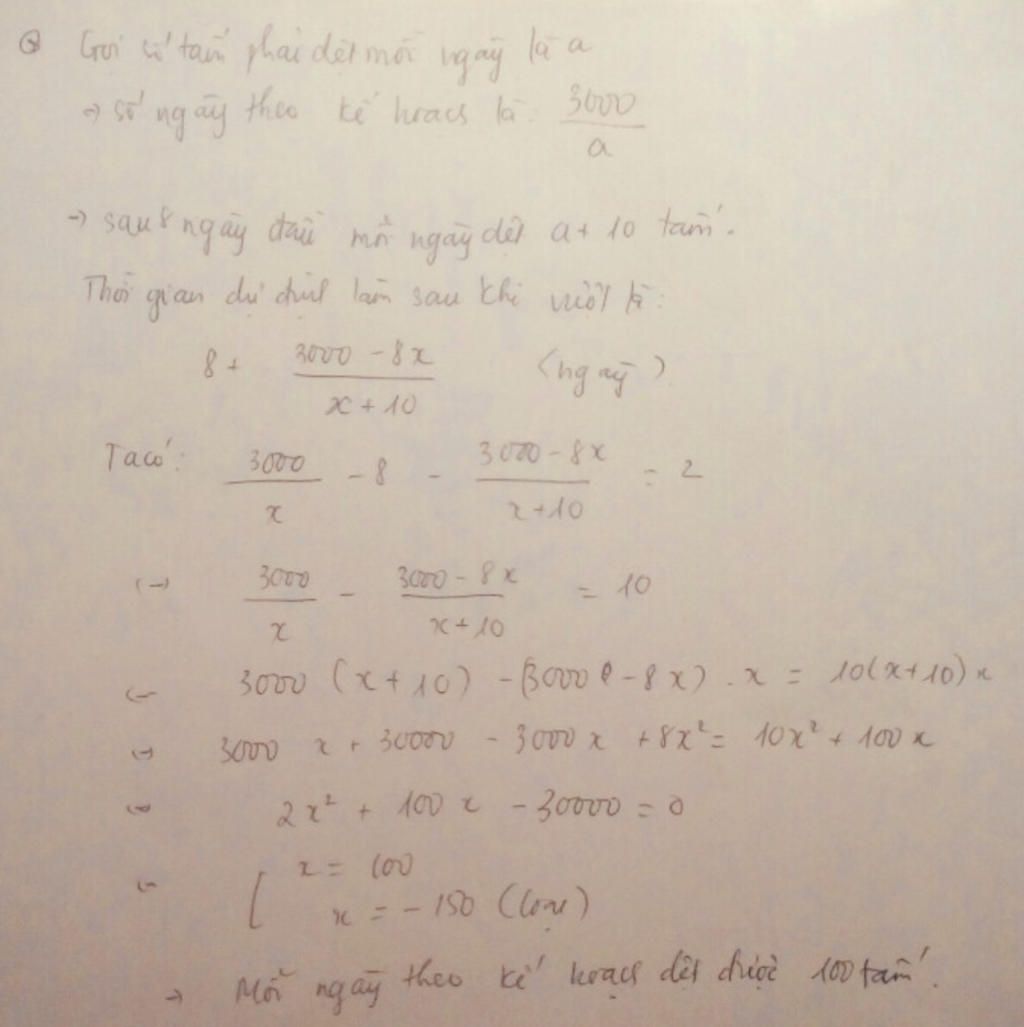 Gọi số tấm phải dệt mỗi ngày là a
→ số ngày theo kế hoạch là: 3000/a
→ sau 8 ngày đầu mỗi ngày dệt a + 10 tấm.
Thời gian dự định làm sau khi vượt là:
8 + (3000 - 8x)/(x + 10) (ngày)
Ta có: 3000/x - 8 - (3000 - 8x)/(x + 10) = 2
(→) 3000/x - (3000 - 8x)/(x + 10) = 10
3000 (x + 10) - (3000 - 8x) . x = 10(x + 10)x
3000 x + 30000 - 3000 x + 8x² = 10x² + 100x
2x² + 100x - 30000 = 0
[ x = 100
x = -150 (loại)
→ Mỗi ngày theo kế hoạch dệt được 100 tấm.